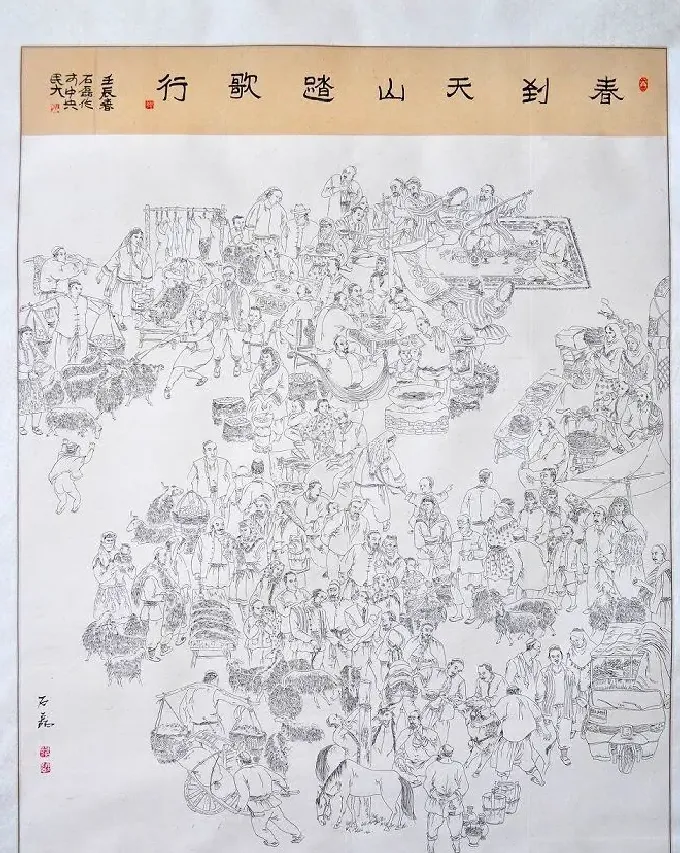 春到天山踏歌行
壬辰春
石磊作
中央
民大
石磊